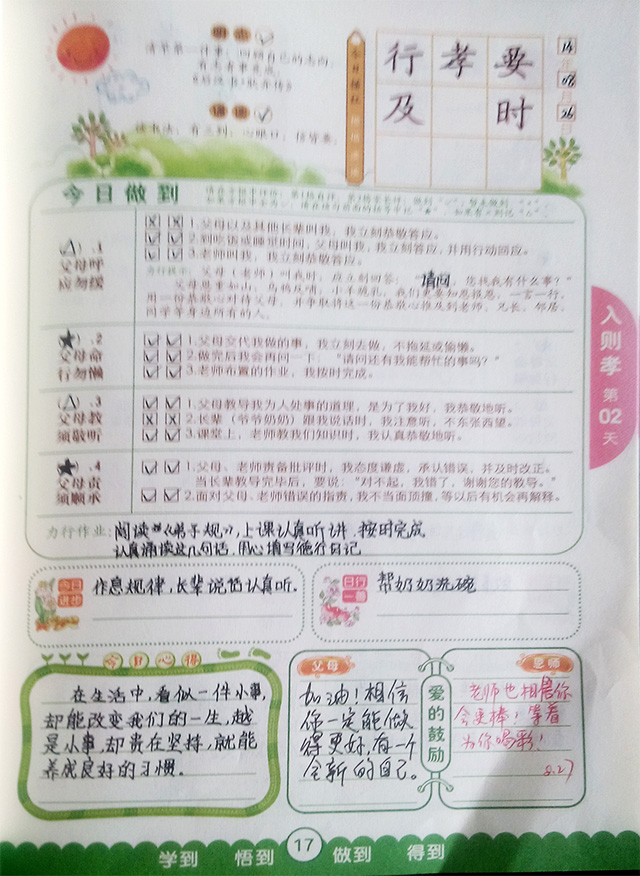 明志
清早第一件事：回顾自己的志向。
有志者事竟成。
诵读
读书法，有三到，心眼口，信皆要。
今日描红
行 孝 要
及 时
14年
08月
26日
今日做到
( △ ).1
父母呼
应勿缓
1.父母以及其他长辈叫我，我立刻恭敬答应。
2.到吃饭或睡觉时间，父母叫我，我立刻答应，并用行动回应。
3.老师叫我，我立刻恭敬答应。
力行提示：父母（老师）叫我时，应立刻回答：“请问，您找我有什么事？”
父母恩重如山，乌鸦反哺，小羊跪乳，我们更要知恩报恩，一言一行，
用一份恭敬心对待父母，并争取将这一份恭敬心推及到老师、兄长、邻居、
同学等身边所有的人。
( ★ ).2
父母命
行勿懒
1.父母交代我做的事，我立刻去做，不拖延或偷懒。
2.做完后我会再问一下：“请问还有我能帮忙的事吗？”
3.老师布置的作业，我按时完成。
( △ ).3
父母教
须敬听
1.父母教导我为人处事的道理，是为了我好，我恭敬地听。
2.长辈（爷爷奶奶）跟我说话时，我注意听，不东张西望。
3.课堂上，老师教我们知识时，我认真恭敬地听。
( ★ ).4
父母责
须顺承
1.父母、老师责备批评时，我态度谦虚，承认错误，并及时改正。
当长辈教导完毕后，要说：“对不起，我错了，谢谢您的教导。”
2.面对父母、老师错误的指责，我不当面顶撞，等以后有机会再解释。
力行作业：阅读《弟子规》，上课认真听讲，按时完成
认真诵读这几句话，用心填写德行日记
入则孝
第
02
天
今日进步
作息规律，长辈说话认真听。
日行一善
帮奶奶洗碗
今日心得
在生活中，看似一件小事，
却能改变我们的一生，越
是小事，却贵在坚持，就能
养成良好的习惯。
父母
加油！相信
你一定能做
得更好，有一个
全新的自己。
爱的鼓励
恩师
老师也相信你
会更棒！等着
为你喝彩！
8.27
学到 悟到 17 做到 得到